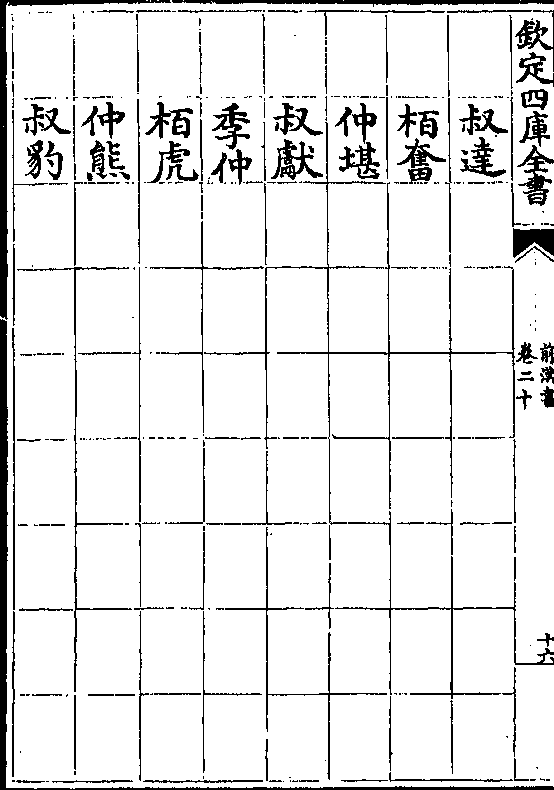 欽定四庫全書
前漢書
卷二十
十六
叔達
栢奮
仲堪
叔獻
季仲
栢虎
仲熊
叔豹